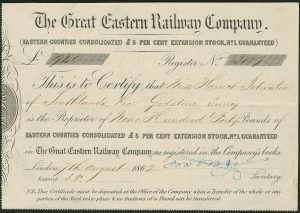 The Great Eastern Railway Company.
(EASTERN COUNTIES CONSOLIDATED £5 PER CENT EXTENSION STOCK, No 1, GUARANTEED)
£ 940 Register No.
This is to Certify that Miss Harriet Johnston
of Southlands near Godstone Surrey
is the Proprietor of Nine Hundred Forty Pounds of
EASTERN COUNTIES CONSOLIDATED £5 PER CENT EXTENSION STOCK, No 1, GUARANTEED
in the Great Eastern Railway Company, as registered in the Company's books.
London 7th August 1862
Entered Secretary.
N.B. This Certificate must be deposited at the Office of the Company when a Transfer of the whole or any
portion of the Stock takes place. No fractions of a Pound can be transferred.